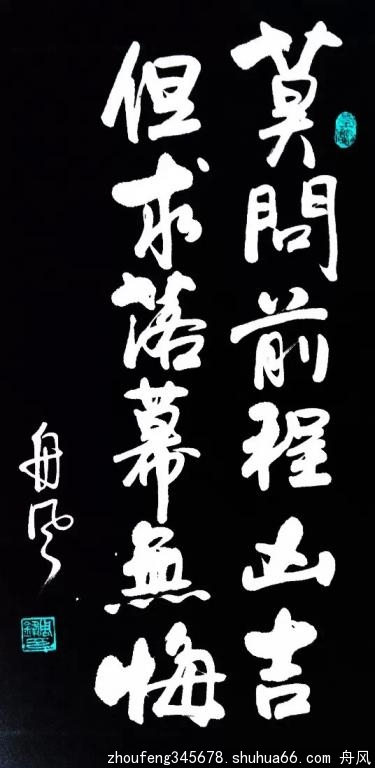 莫問前程凶吉
但求落幕無悔
舟風
zhoufeng345678.shuhua66.com 舟风